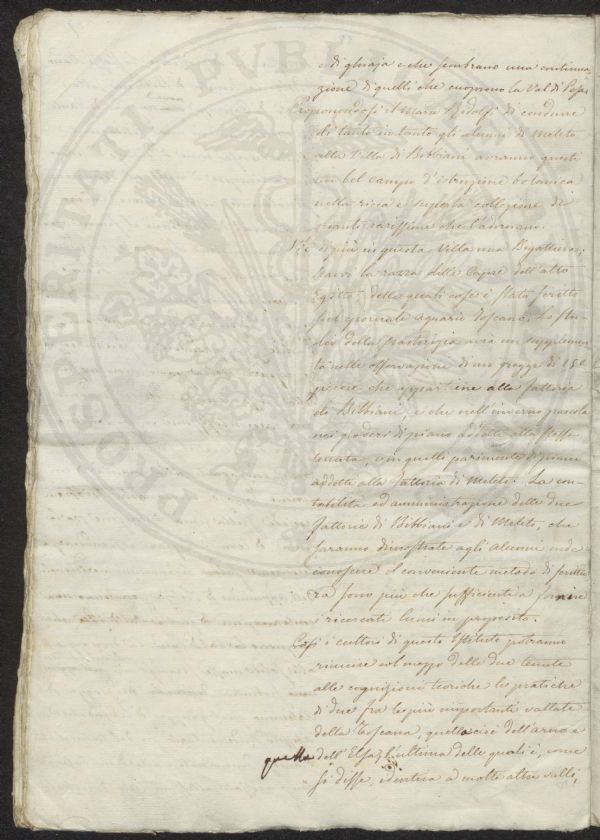 e di ghiaja e che sembrano una continua
zione di quelli che cuoprono la Val di Pesa.
Proponendosi il March. Ridolfi di condurre
di tanto in tanto gli alunni di Meleto
alla Villa di Bibbiani avranno questi
un bel campo d'istruzione botanica
nella ricca e superba collezione di
piante rarissime che l'adornano.
Vi è di più in questa Villa una Bigattiera,
havvi la razza delle Capre dell'alto
Egitto, delle quali cose è stato scritto
sul giornale agrario toscano. Lo stu-
dio della Pastorizia avrà un supplemen
to nelle osservazione di un gregge di 150
pecore che appartiene alla fattoria
di Bibbiani, e che nell'inverno pascola
nei poderi di piano addetti alla stessa
tenuta, o in quelli parimente di piano
addetti alla fattoria di Meleto. La con-
tabilità ed amministrazione delle due
fattorie di Bibbiani e di Meleto, che
saranno dimostrate agli alunni onde
conoscere il conveniente metodo di scrittu
ra sono più che sufficienti a fornire
i ricercati lumi in proposito.
Così i cultori di questo Istituto potranno
riunire col mezzo delle due tenute
alle cognizioni teoriche le pratiche
di due fra le più importanti vallate
della Toscana, quella cioè dell'Arno e
quella dell'Elsa, l'ultima delle quali è, come
si disse, identica a molte altre valli,
PROSPERITATI PUBL